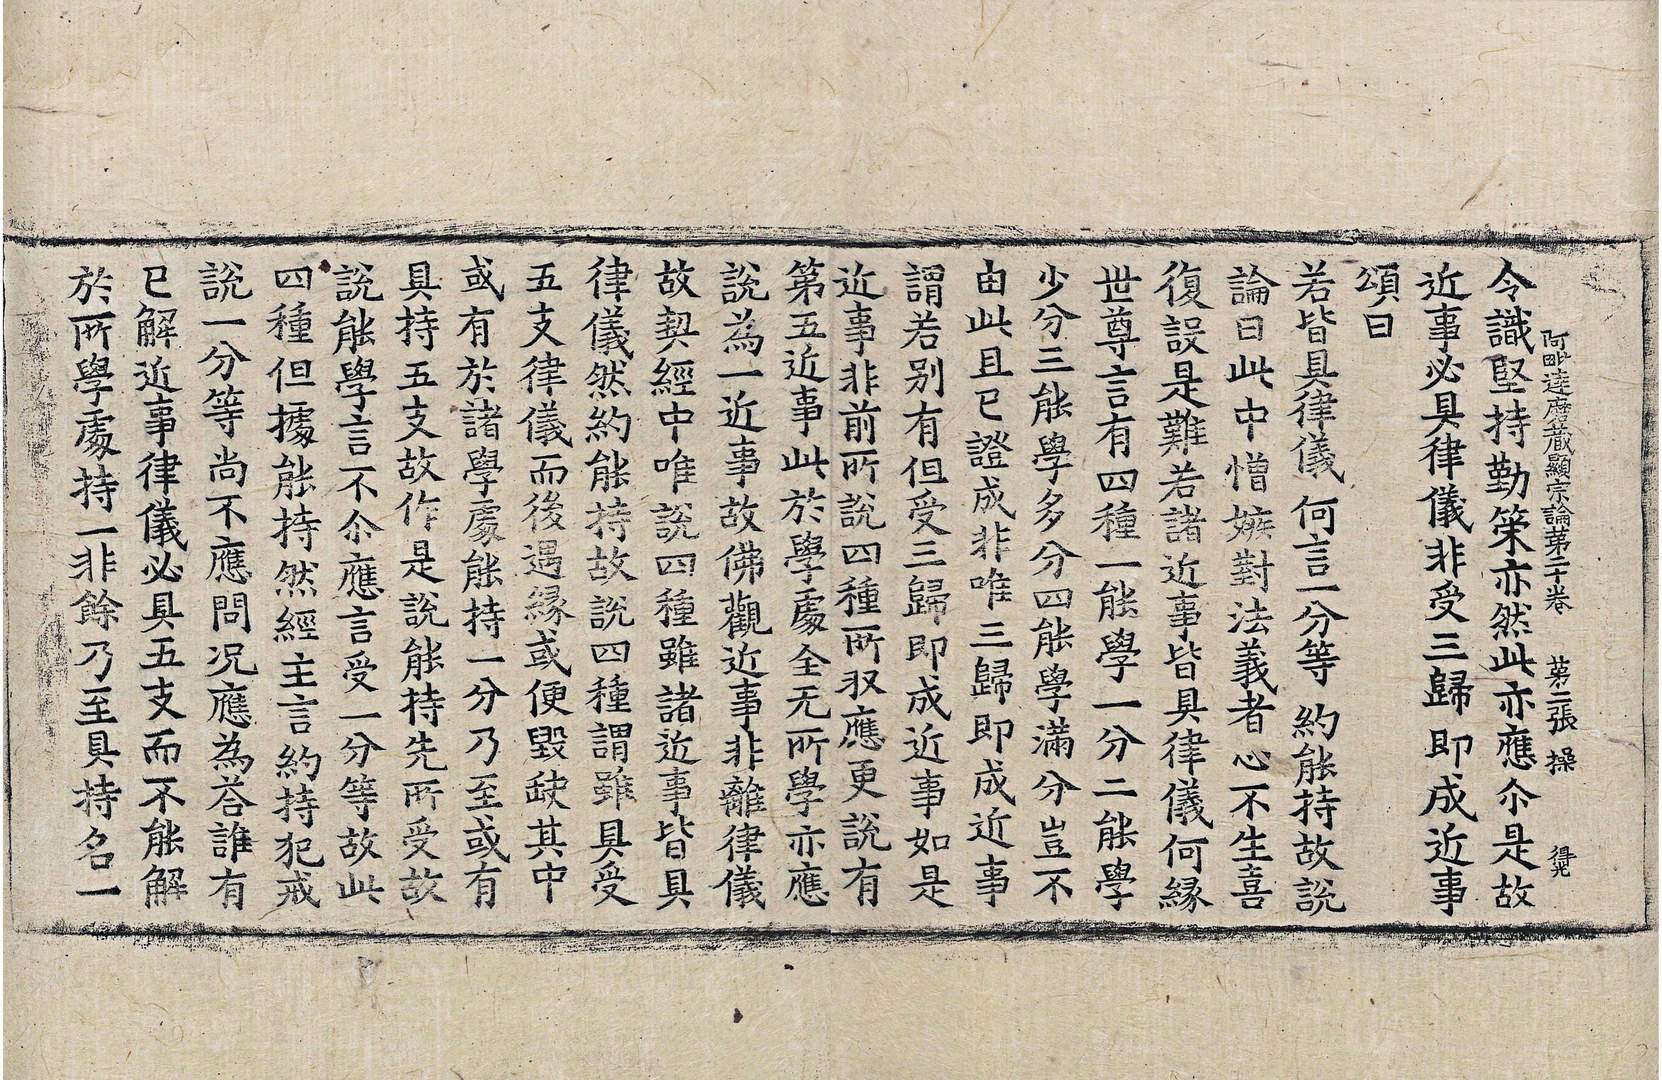 阿毗達磨藏顯宗論第二十卷 第二張 操 得光
令識堅持勤策亦然此亦應尒是故
近事必具律儀非受三歸即成近事
頌曰
若皆具律儀 何言一分等 約能持故說
論曰此中憎嫉對法義者心不生喜
復設是難若諸近事皆具律儀何縁
世尊言有四種一能學一分二能學
少分三能學多分四能學滿分豈不
由此且已證成非唯三歸即成近事
謂若别有但受三歸即成近事如是
近事非前所說四種所収應更說有
第五近事此於學處全无所學亦應
說為一近事故佛觀近事非離律儀
故契經中唯說四種雖諸近事皆具
律儀然約能持故說四種謂雖具受
五支律儀而後遇縁或便毀缺其中
或有於諸學處能持一分乃至或有
具持五支故作是說能持先所受故
說能學言不尒應言受一分等故此
四種但據能持然經主言約持犯戒
說一分等尚不應問况應為荅誰有
已解近事律儀必具五支而不能解
於所學處持一非餘乃至具持名一